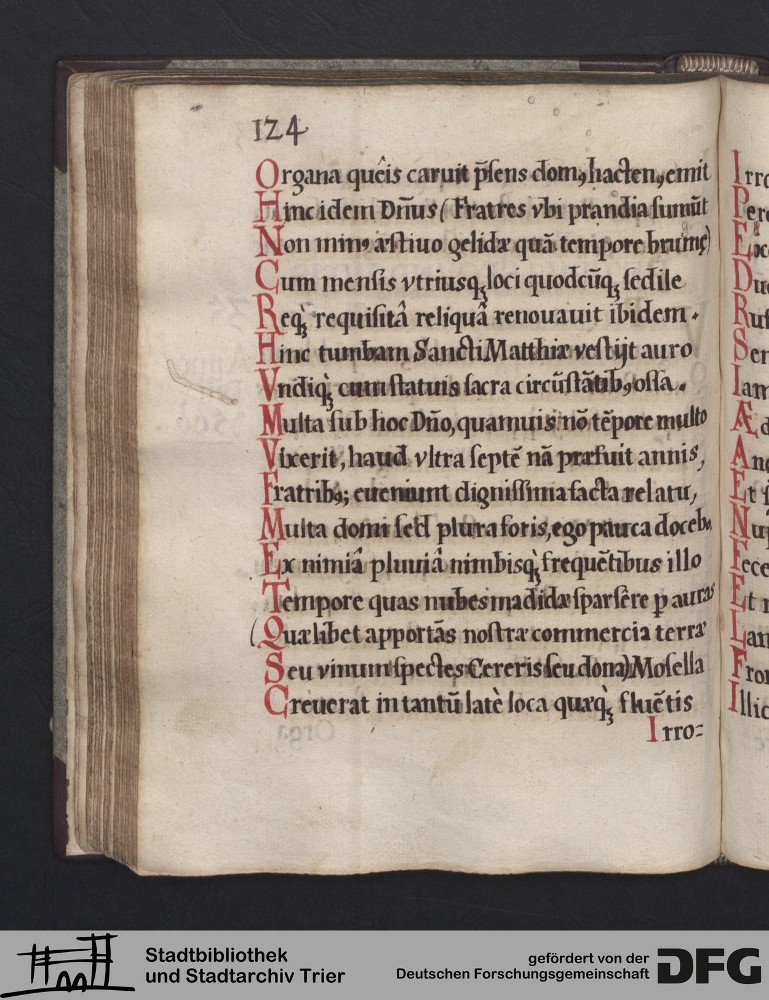 124
Organa quêis caruit p̄sens domꝰ hactenꝰ, emit
Hinc idem Dn̄us (Fratres vbi prandia sumūt
Non minꝰ æstiuo gelidæ quā tempore brumę)
Cum mensis vtriusqꝫ loci quodcūqꝫ sedile
Reqꝫ̀ requisitâ reliquâ renouauit ibidem.
Hinc tumbam Sancti Matthiæ vestijt auro
Vndiqꝫ̀ cum statuis sacra circūstātibꝰ ossa.
Multa sub hoc Dn̄o, quamuis nō tēpore multo
Vixerit, haud vltra septē nā præfuit annis,
Fratribꝰ; eueniunt dignissima facta relatu,
Multa domi sed plura foris, ego pauca docebo.
Ex nimiâ pluuiâ nimbisqꝫ̀ frequētibus illo
Tempore quas nubes madidæ sparsêre ꝑ auras
(Quælibet apportās nostræ commercia terræ
Seu vinum spectes Cereris seu dona) Mosella
Creuerat in tantū latè loca quæqꝫ̀ fluētis
Irro=
Irro
Per
Ex
Du
Ruf
Ser
Iam
Æd
And
Et s
Nu
Fece
Et
Lan
Fron
Illic
Stadtbibliothek
und Stadtarchiv Trier
gefördert von der
Deutschen Forschungsgemeinschaft
DFG